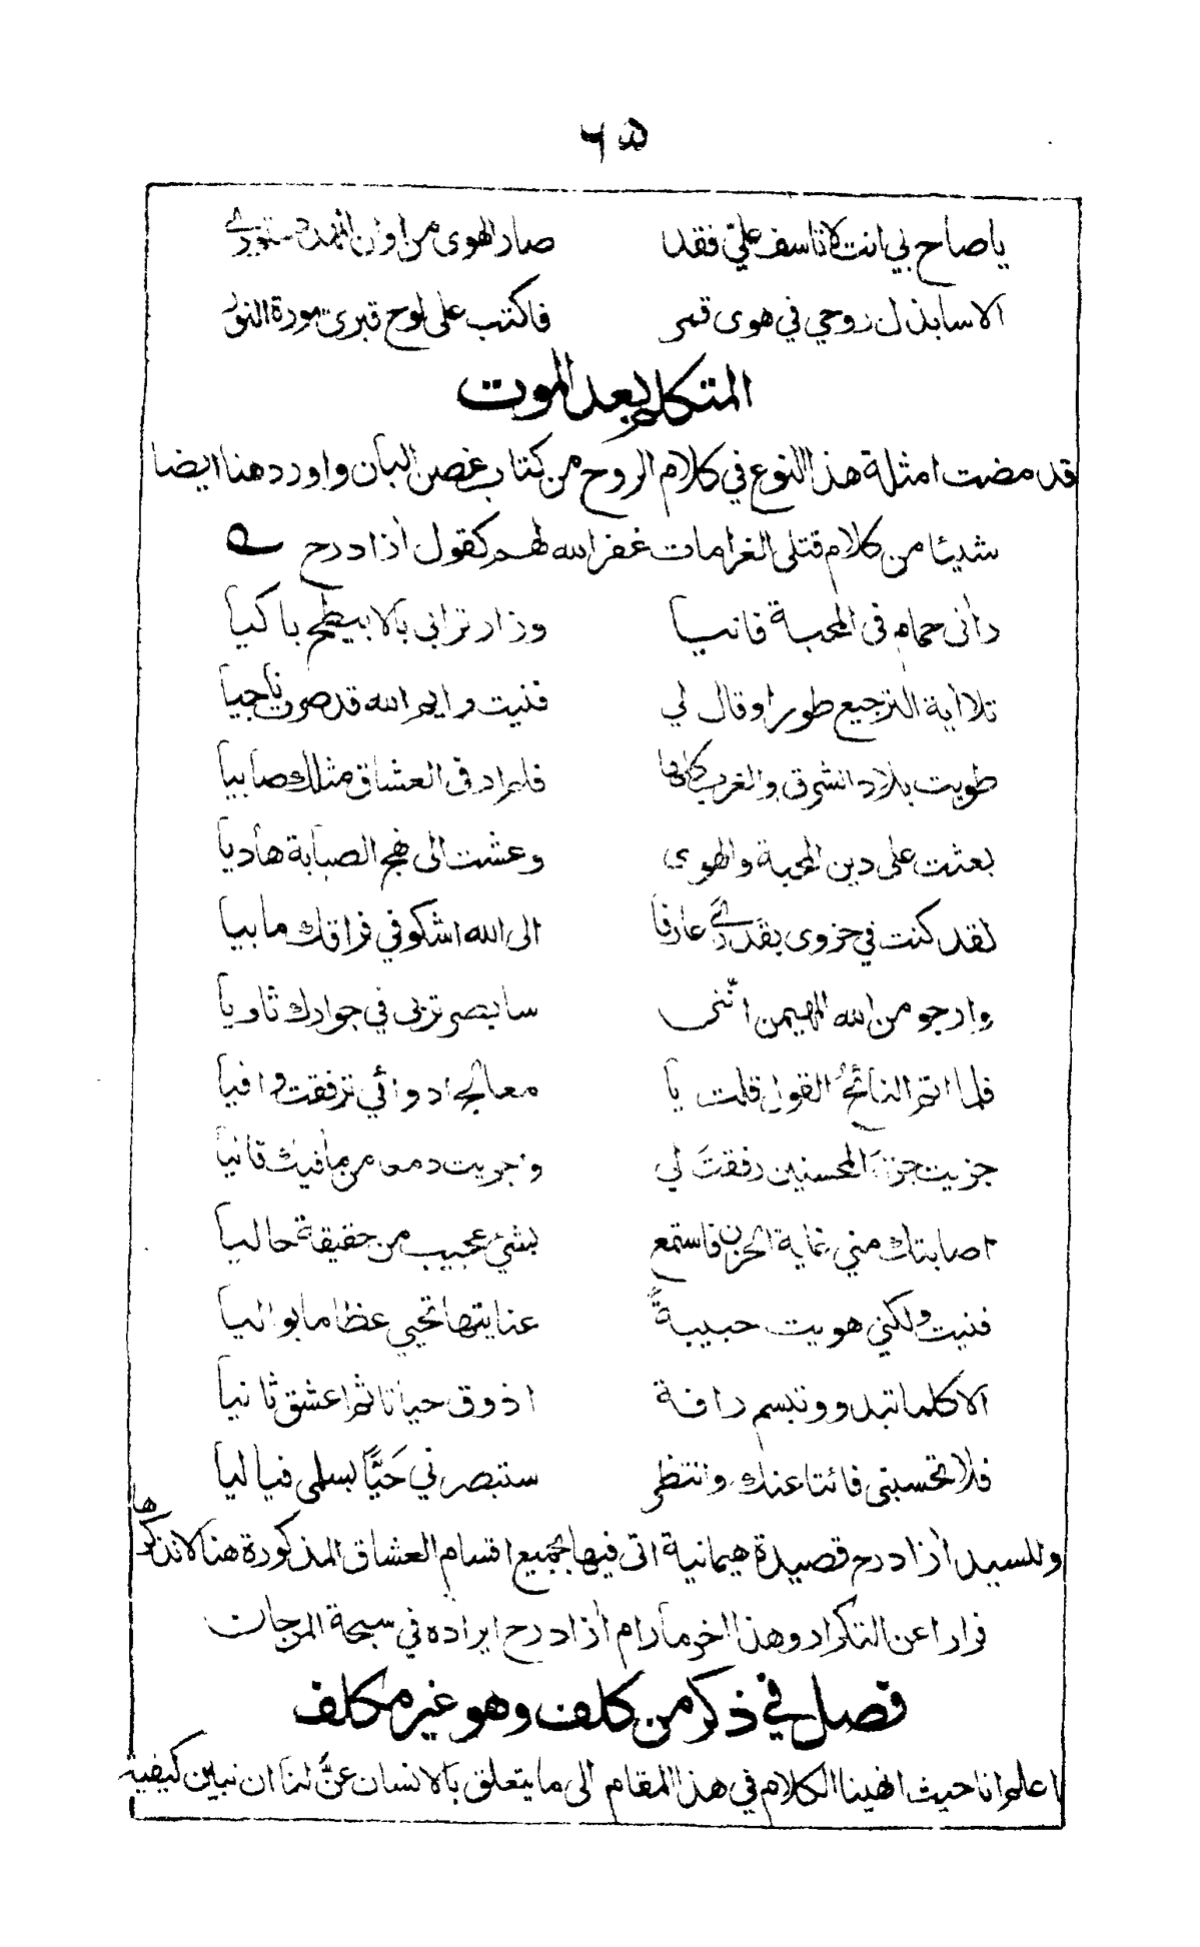 ٦٥
يا صاح بي انت لا تاسف علي فقد صار الهوى من اوان المهد دستوري
الا سابذل روحي في هوى قمر فاكتب على لوح قبري سورة النور
المتكلم بعد الموت
قد مضت امثلة هذا النوع في كلام الروح من كتاب غصن البان واورد هنا ايضا
شيئا من كلام قتلى الغرامات غفر الله لهم كقول ازاد رح
راني حمام في المحبة فانيا وزار ترابي بالابيطح باكيا
تلا اية الترجيع طورا وقال لي فنيت وايم الله قد صرت ناجيا
طويت بلاد الشرق والغرب كلها فلم ار في العشاق مثلك صابيا
بعثت على دين المحبة والهوى وعشت الى نهج الصبابة هاديا
لقد كنت في حزوى بقدري عارفا الى الله اشكو في فراقك ما بيا
وارجو من الله المهيمن انّني سابصر تربي في جوارك ثاويا
فلما اتم النائحُ القول قلت يا معالج ادوائي ترفقت وافيا
جزيت جزاء المحسنين رفقتَ لي واجريت دمعا من مافيك قانيا
اصابتك مني غاية الحزن فاستمع بشئ عجيب من حقيقة حاليا
فنيت ولكني هويت حبيبةً عنايتها تحيي عظاما بواليا
الا كلما تبدو وتبسم رافة اذوق حياتا ثم اعشق ثانيا
فلا تحسبني فائتا عنك وانتظر ستبصرني حَيًّا بسلمى فياليا
وللسيد ازاد رح قصيدة هيمانية اتى فيها بجميع اقسام العشاق المذكورة هنا لا نذكرها
فرارا عن التكرار وهذا اخر ما رام ازاد رح ايراده في سبحة المرجان
فصل في ذكر من كلف وهو غير مكلف
اعلم انا حيث انهينا الكلام في هذا المقام الى ما يتعلق بالانسان عنَّ لنا ان نبين كيفية